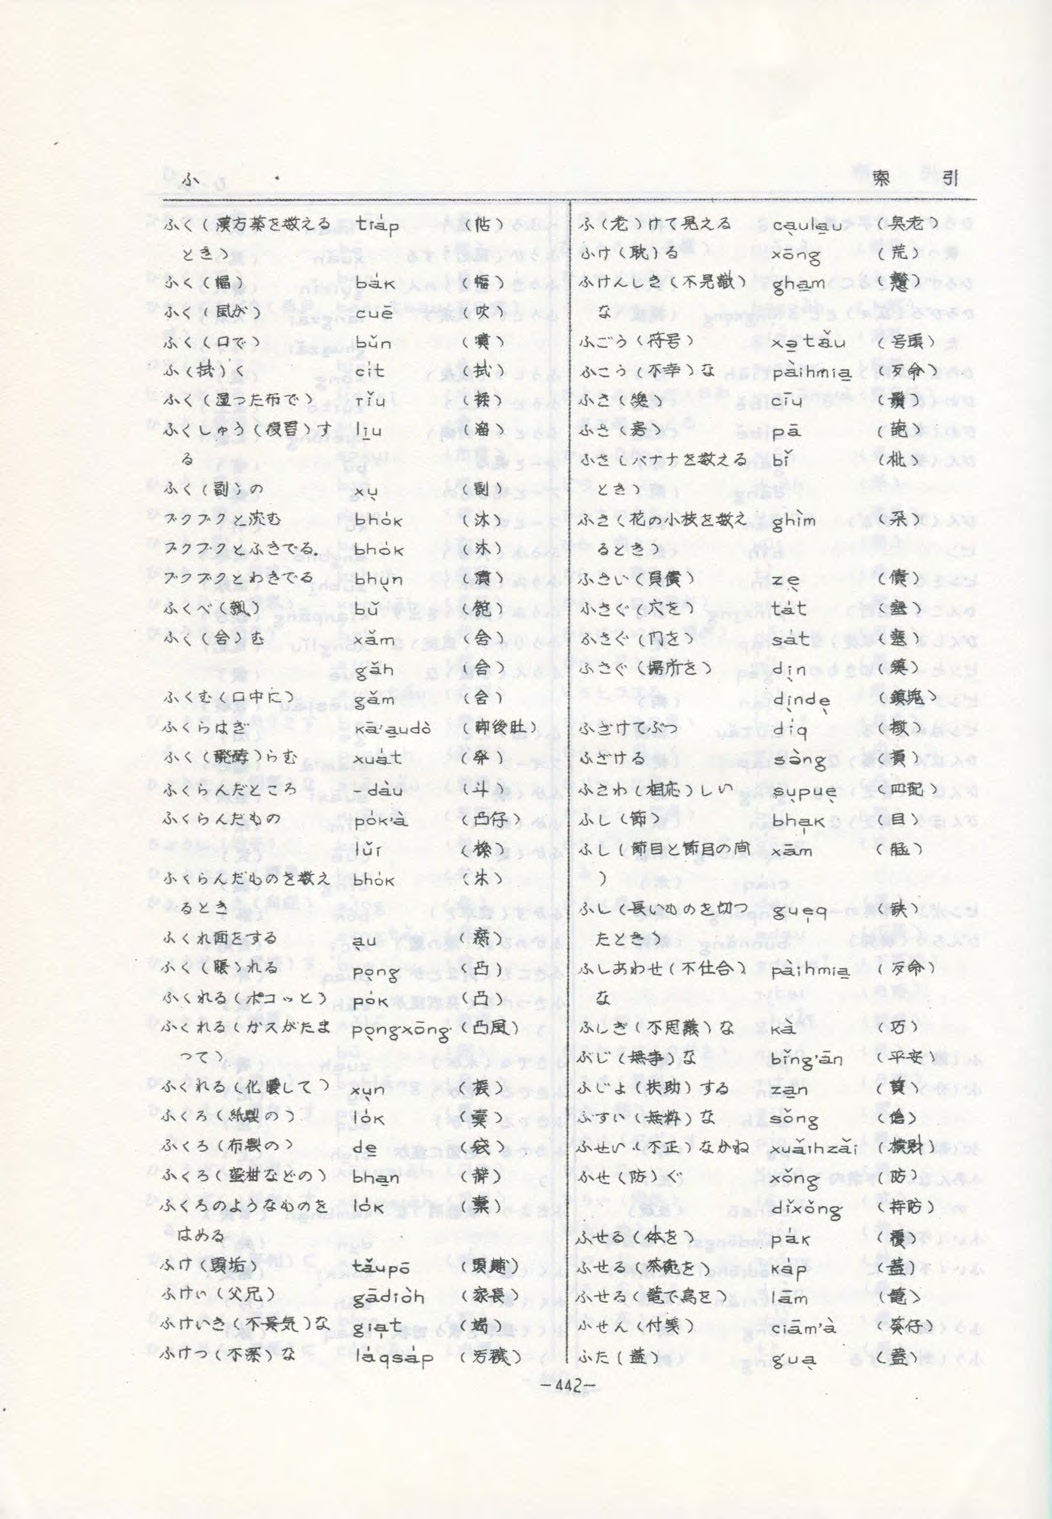 ふ 索 引
ふく(漢方薬を数える tiáp (帖)
とき)
ふく(幅) bák (幅)
ふく(風が) cuē (吹)
ふく(口で) bǔn (噴)
ふ(拭)く cít (拭)
ふく(湿った布で) rǐu
ふくしゅう(復習)す li̱u (溜)
る
ふく(副)の xụ (副)
ブクブクと沈む bhók (沐)
ブクブクとふきでる. bhók (沐)
ブクブクとわきでる bhụn (濆)
ふくべ(瓢) bǔ (匏)
ふく(含)む xǎm (含)
gǎh (含)
ふくむ(口中に) gǎm (含)
ふくらはぎ kā'a̱udò (後肚)
ふく(醗酵)らむ xua̍t (発)
ふくらんだところ -dàu (斗)
ふくらんだもの pók'à (凸仔)
lǔi
ふくらんだものを数え bhók
るとき
ふくれ面をする a̱u
ふく(脹)れる pọng (凸)
ふくれる(ポコッと) pók (凸)
ふくれる(ガスがたま pọngxōng (凸風)
って)
ふくれる(化膿して) xụn
ふくろ(紙製の) lók (橐)
ふくろ(布製の) dẹ (袋)
ふくろ(蜜柑などの) bha̱n (瓣)
ふくろのようなものを lók (橐)
はめる
ふけ(頭垢) tǎupō
ふけい(父兄) gādiòh (家長)
ふけいき(不景気)な gia̍t (竭)
ふけつ(不潔)な láqsáp
ふ(老)けて見える ca̱ula̱u (臭老)
ふけ(耽)る xōng (荒)
ふけんしき(不見識) gha̱m
な
ふごう(符号) xa̱tǎu (号頭)
ふこう(不幸)な pàihmia̱ (歹命)
ふさ(總) cīu (鬚)
ふさ(房) pā (葩)
ふさ(バナナを数える bǐ (枇)
とき)
ふさ(花の小枝を数え ghìm (朶)
るとき)
ふさい(負債) zẹ (債)
ふさぐ(穴を) tát
ふさぐ(円を) sát (塞)
ふさぐ(場所を) dịn (鎮)
dịndẹ (鎮塊)
ふざけてぶつ díq
ふざける sàng
ふさわ(相応)しい sụpuẹ (四配)
ふし(節) bha̍k (目)
ふし(節目と節目の間 xām
)
ふし(長いものを切っ gue̍q
たとき)
ふしあわせ(不仕合) pàihmia̱ (歹命)
な
ふしぎ(不思議)な kà (巧)
ぶじ(無事)な bǐng'ān (平安)
ふじょ(扶助)する za̱n (賛)
ぶすい(無粋)な sǒng
ふせい(不正)なかね xuǎihzǎi (横財)
ふせ(防)ぐ xǒng (防)
dǐxǒng (持防)
ふせる(体を) pák (覆)
ふせる(茶碗を) káp (蓋)
ふせる(篭で鳥を) lām
ふせん(付箋) ciām'à (簽仔)
ふた(蓋) gua̱ (蓋)
-442-